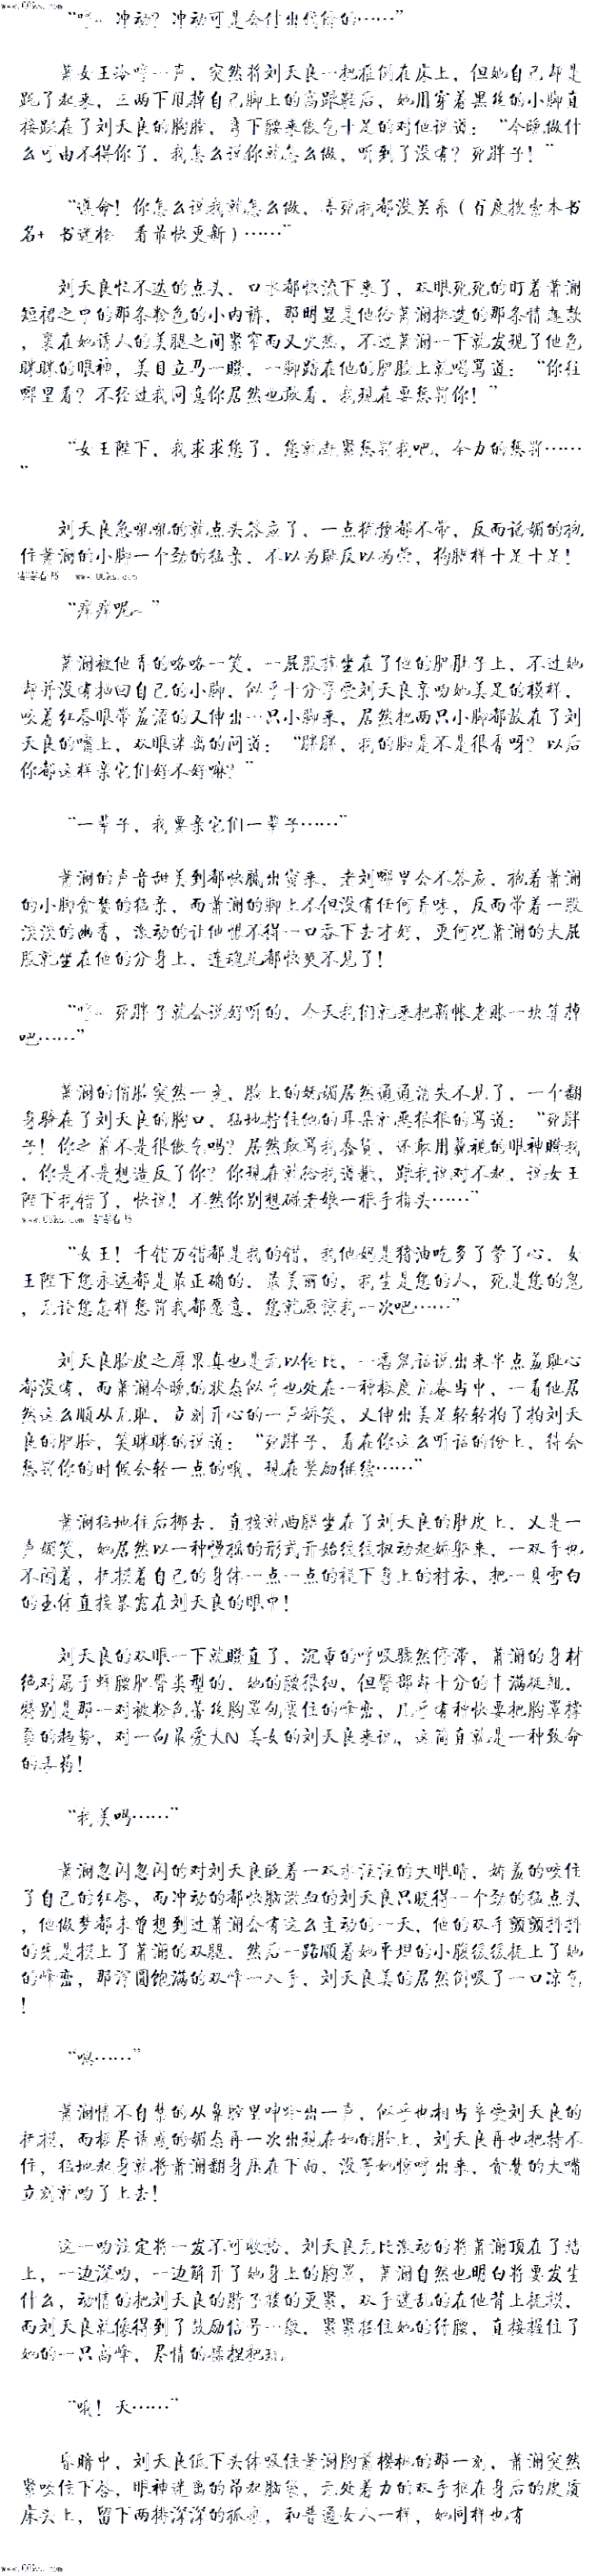 www.00ks.com
“哼~ 冲动？冲动可是会付出代价的……”
萧女王冷哼一声，突然将刘天良一把推倒在床上，但她自己却是
跪了起来，三两下甩掉自己脚上的高跟鞋后，她用穿着黑丝的小脚直
接踩在了刘天良的胸膛，弯下腰来傲气十足的对他说道：“今晚做什
么可由不得你了，我怎么说你就怎么做，听到了没有？死胖子！”
“遵命！你怎么说我就怎么做，弄死我都没关系（百度搜索本书
名+ 书迷楼 看最快更新）……”
刘天良忙不迭的点头，口水都快流下来了，双眼死死的盯着萧澜
短裙之中的那条粉色的小内裤，那明显是他给萧澜挑选的那条情趣款
，裹在她诱人的美腿之间紧窄而又火热，不过萧澜一下就发现了他色
眯眯的眼神，美目立马一瞪，一脚踏在他的肥脸上就喝骂道：“你往
哪里看？不经过我同意你居然也敢看，我现在要惩罚你！”
“女王陛下，我求求您了，您就赶紧惩罚我吧，全力的惩罚……
”
刘天良急吼吼的就点头答应了，一点犹豫都不带，反而谄媚的抱
住萧澜的小脚一个劲的猛亲，不以为耻反以为荣，狗腿样十足十足！
www.00ks.com
“痒痒呢~”
萧澜被他弄的咯咯一笑，一屁股就坐在了他的肥肚子上，不过她
却并没有抽回自己的小脚，似乎十分享受刘天良亲吻她美足的模样，
咬着红唇眼带羞涩的又伸出一只小脚来，居然把两只小脚都放在了刘
天良的嘴上，双眼迷离的问道：“胖胖，我的脚是不是很香呀？以后
你都这样亲它们好不好嘛？”
“一辈子，我要亲它们一辈子……”
萧澜的声音甜美到都快腻出蜜来，老刘哪里会不答应，抱着萧澜
的小脚贪婪的猛亲，而萧澜的脚上不但没有任何异味，反而带着一股
淡淡的幽香，激动的让他恨不得一口吞下去才好，更何况萧澜的大屁
股就坐在他的分身上，连魂儿都快要不见了！
“哼~ 死胖子就会说好听的，今天我们就来把新帐老账一块算掉
吧……”
萧澜的俏脸突然一变，脸上的娇媚居然通通消失不见了，一个翻
身骑在了刘天良的胸口，猛地拧住他的耳朵就恶狠狠的骂道：“死胖
子！你之前不是很傲气吗？居然敢骂我蠢货，还敢用藐视的眼神瞪我
，你是不是想造反了你？你现在就给我道歉，跟我说对不起，说女王
陛下我错了，快说！不然你别想碰老娘一根手指头……”
www.00ks.com
“女王！千错万错都是我的错，我他妈是猪油吃多了蒙了心，女
王陛下您永远都是最正确的、最美丽的，我生是您的人，死是您的鬼
，无论您怎样惩罚我都愿意，您就原谅我一次吧……”
刘天良脸皮之厚果真也是无以伦比，一番鬼话说出来半点羞耻心
都没有，而萧澜今晚的状态似乎也处在一种极度亢奋当中，一看他居
然这么顺从无耻，立刻开心的一声娇笑，又伸出美足轻轻拍了拍刘天
良的肥脸，笑眯眯的说道：“死胖子，看在你这么听话的份上，待会
惩罚你的时候会轻一点的哦，现在奖励继续……”
萧澜猛地往后挪去，直接就曲腿坐在了刘天良的肚皮上，又是一
声媚笑，她居然以一种慢摇的形式开始缓缓扭动起娇躯来，一双手也
不闲着，抚摸着自己的身体一点一点的褪下身上的衬衣，把一具雪白
的玉体直接暴露在刘天良的眼中！
刘天良的双眼一下就瞪直了，沉重的呼吸骤然停滞，萧澜的身材
绝对属于蜂腰肥臀类型的，她的腰很细，但臀部却十分的丰满挺翘，
特别是那一对被粉色蕾丝胸罩包裹住的峰峦，几乎有种快要把胸罩撑
裂的趋势，对一向最爱大N 美女的刘天良来说，这简直就是一种致命
的毒药！
“我美吗……”
萧澜忽闪忽闪的对刘天良眨着一双水汪汪的大眼睛，娇羞的咬住
了自己的红唇，而冲动的都快脑溢血的刘天良只晓得一个劲的猛点头
，他做梦都未曾想到过萧澜会有这么主动的一天，他的双手颤颤抖抖
的先是摸上了萧澜的双腿，然后一路顺着她平坦的小腹缓缓抚上了她
的峰峦，那浑圆饱满的双峰一入手，刘天良美的居然倒吸了一口凉气
！
“嗯……”
萧澜情不自禁的从鼻腔里呻吟出一声，似乎也相当享受刘天良的
抚摸，而极尽诱惑的媚态再一次出现在她的脸上，刘天良再也把持不
住，猛地起身就将萧澜翻身压在下面，没等她惊呼出来，贪婪的大嘴
立刻就吻了上去！
这一吻注定将一发不可收拾，刘天良无比激动的将萧澜顶在了墙
上，一边深吻，一边解开了她身上的胸罩，萧澜自然也明白将要发生
什么，动情的把刘天良的脖子搂的更紧，双手迷乱的在他背上抚摸，
而刘天良就像得到了鼓励信号一般，紧紧搂住她的纤腰，直接握住了
她的一只高峰，尽情的揉捏把玩。
“哦！天……”
昏暗中，刘天良低下头体吸住萧澜胸前樱桃的那一刻，萧澜突然
紧咬住下唇，眼神迷离的昂起脑袋，无处着力的双手抠在身后的皮质
床头上，留下两排深深的抓痕，和普通女人一样，她同样也有
www.00ks.com